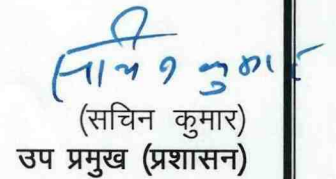 सचिन कुमार
(सचिन कुमार)
उप प्रमुख (प्रशासन)